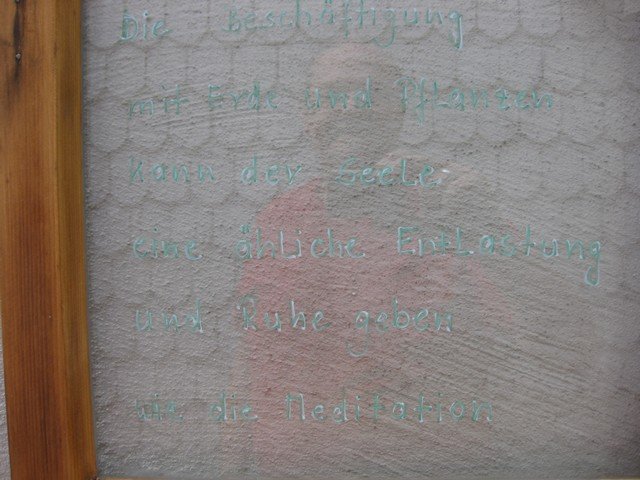 Die beschäftigung
mit Erde und Pflanzen
kann der Seele
eine ähliche Entlastung
und Ruhe geben
wie die Meditation